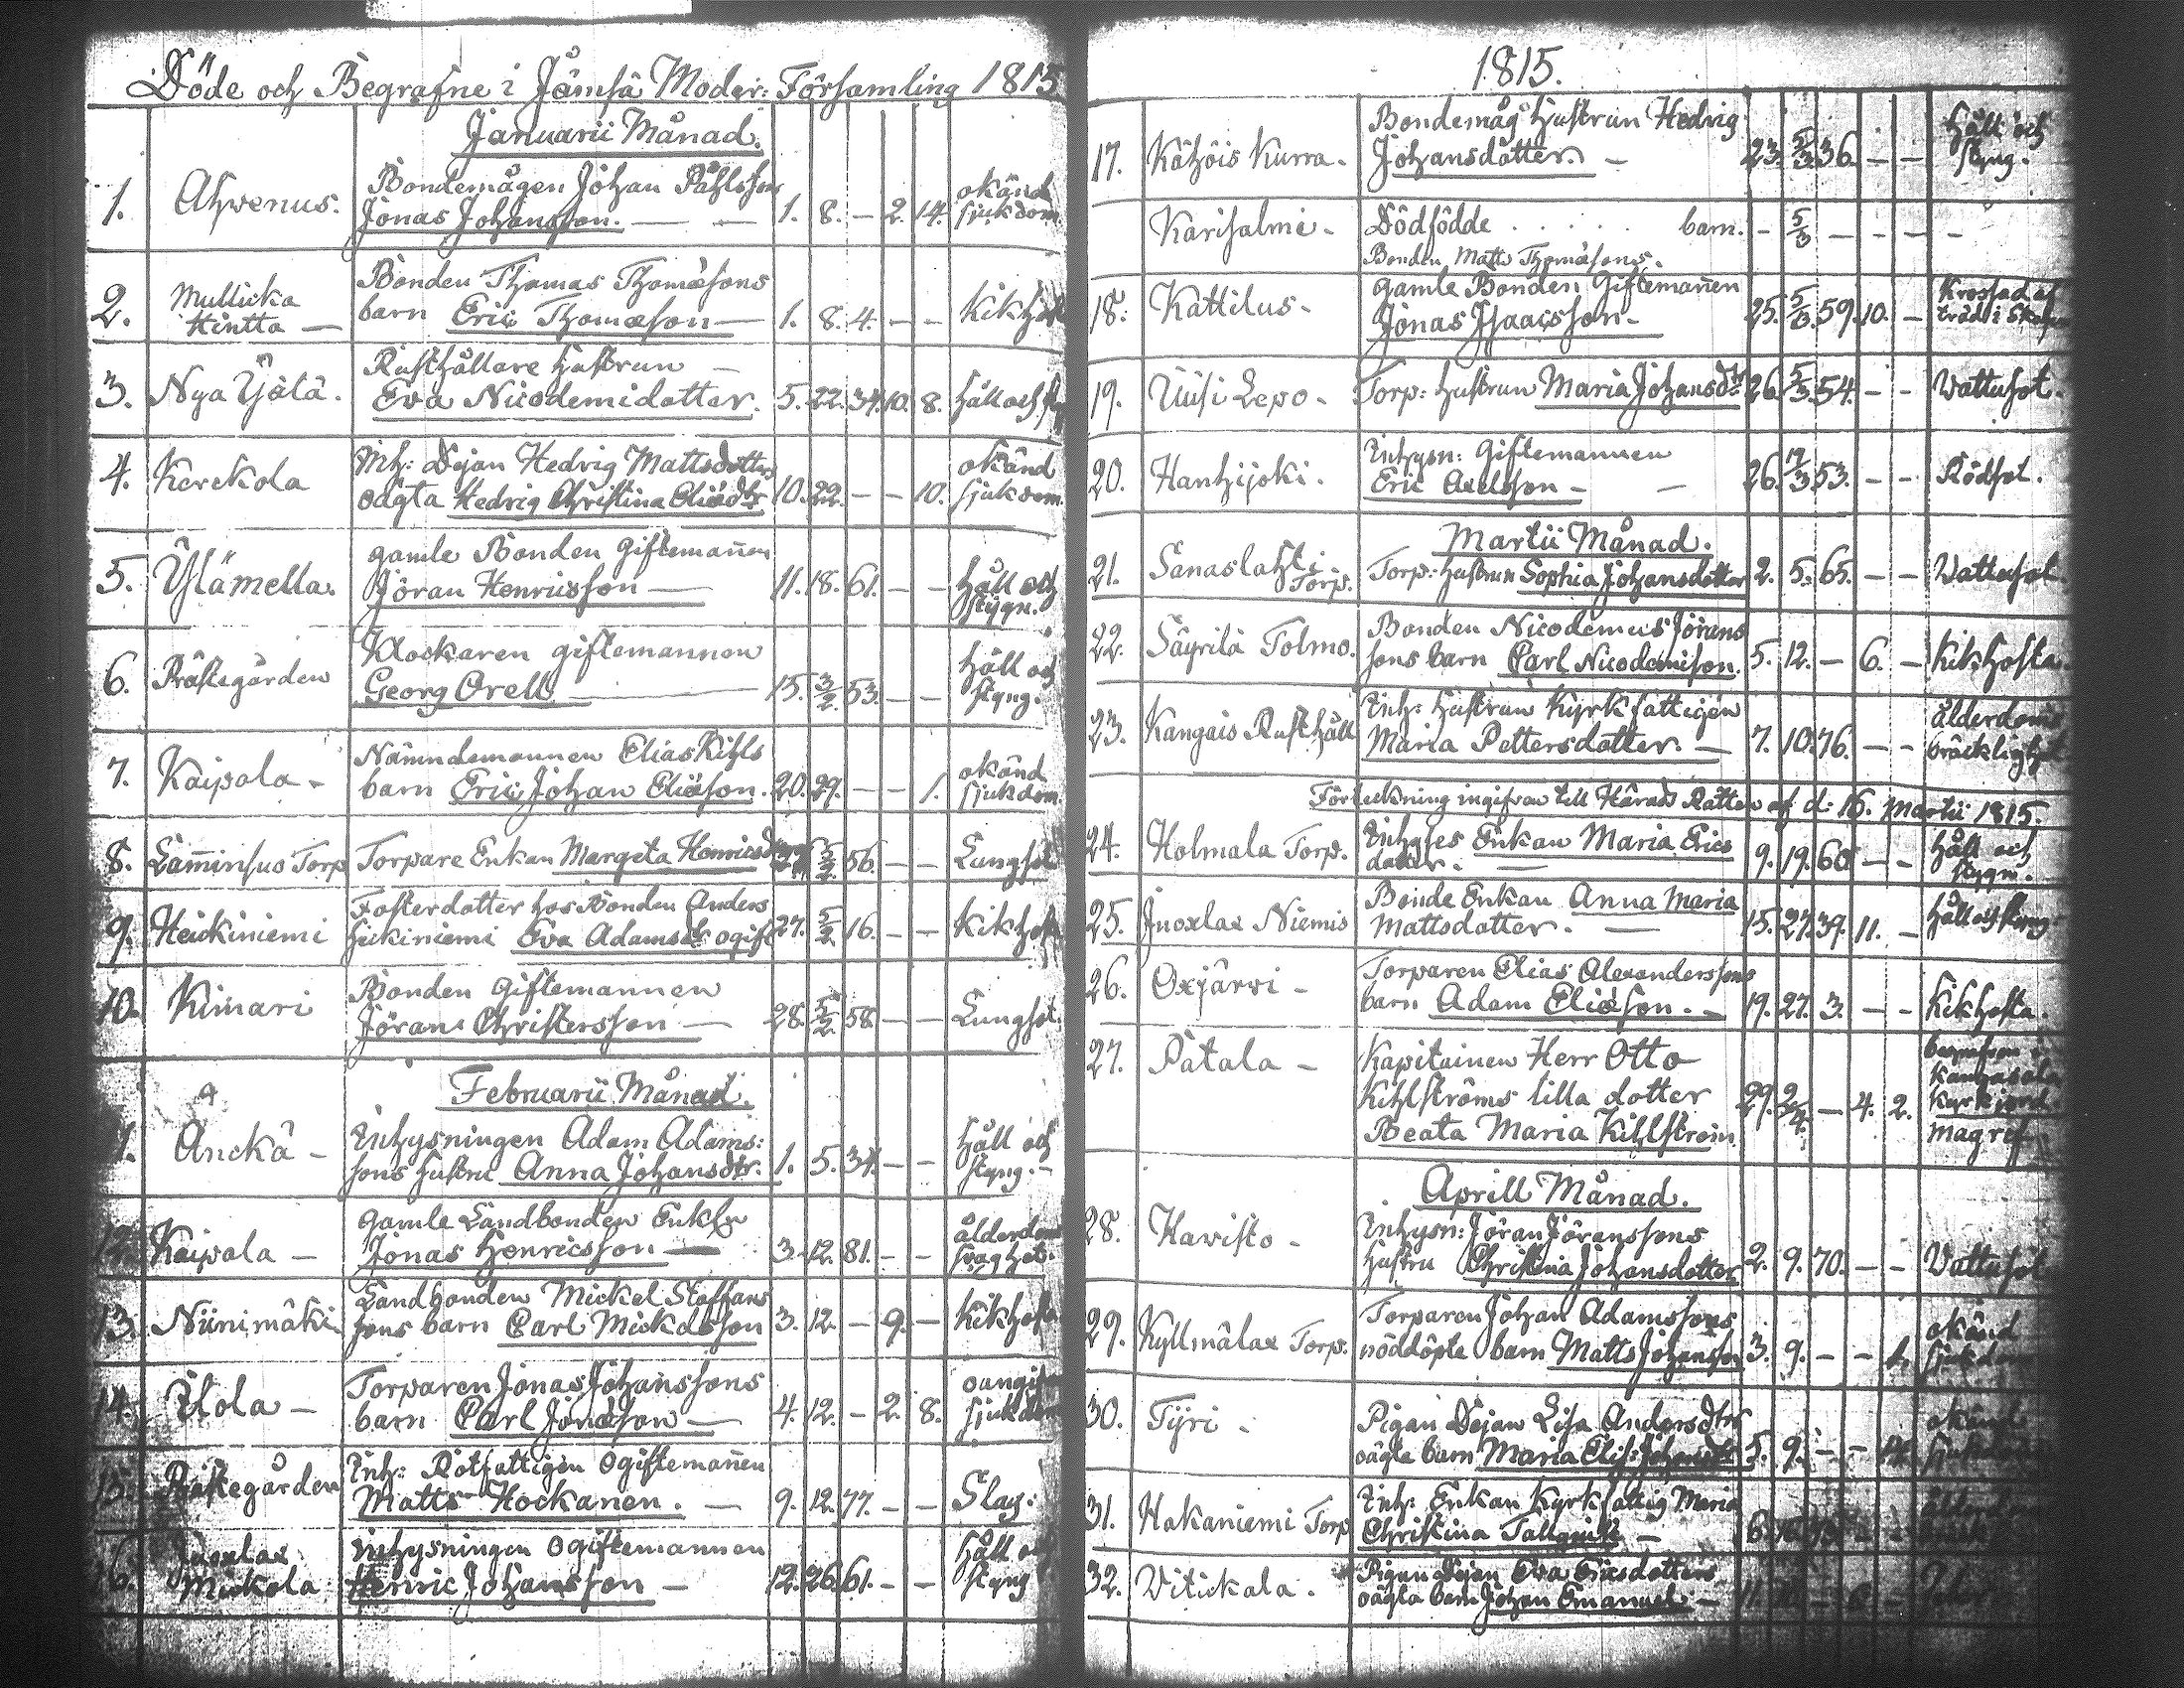 Döde och Begrafne i Jämsä Moder: Församling 1815
Januarii Månad.
1. Ahvenus. Bondemågen Johan Påhlssons okänd
Jonas Johansson. — — 1. 8. — 2. 14. sjukdom
2. Mullicka Bonden Thomas Thomæsons
Hintta — barn Eric Thomæson — 1. 8. 4. — — Kikhosta
3. Nya Ijälä. Rusthållare hustrun —
Eva Nicodemidotter. 5. 22. 34. 10. 8. håll och
4. Kerckola Inh: Dejan Hedvig Mattsdotters okänd
oägta Hedvig Christina Eliædtr 10. 22. — — 10. sjukdom.
5. Ylämella. gamle Bonden giftemannen
Jöran Henricsson — 11. 18. 61. — — håll och
stygn.
6. Prästegården Klockaren giftemannen håll och
Georg Orell — 15. 3/2. 53. — — styng.
7. Kaipala — Nämndemannen Elias Kihls okänd
barn Eric Johan Eliæson. 20. 29. — — 1. sjukdom.
8. Lamminsuo Torp Torpare Enkan Margeta Henricsdotter 5/2. 56. — — Lungsot
9. Heickiniemi Fosterdotter hos Bonden Anders
heickiniemi Eva Adamsdtr ogift 27. 5/2. 16. — — kikhosta
10. Kimari Bonden Giftemannen
Jöran Christersson — 28. 5/2. 58. — — Lungsot.
Februarii Månad.
11. Anckä — Inhysningen Adam Adams: håll och
sons hustru Anna Johansdtr. 1. 5. 34. — — styng. —
12. Kaipala — Gamle Landbonden Enkln ålderdoms
Jonas Henricsson — 3. 12. 81. — — svaghet.
13. Niinimäki Landbonden Mickel Staffans
sons barn Carl Mickelsson 3. 12. — 9. — kikhosta
14. Torparen Jonas Johanssons
barn Carl Jonæson — 4. 12. — 2. 8. sjukdom
15. Prästegården Inh: Rotfattigen Ogiftemannen
Matts Hockanen. — 9. 12. 77. — — Slag.
16. Juoxlax Inhysningen Ogiftemannen håll och
Mickola Henric Johansson — 12. 26. 61. — — styng
1815.
17. Kähöis Kurra. Bondemåg hustrun Hedvig håll och
Johansdotter. — 23. 5/3. 36. — — styng.
Karisalmi — Dödfödde . . . . . barn. — 5/3 — — — —
Bonden Matts Thomæsons.
18. Kattilus — gamle Bonden Giftemannen Krossad af
Jonas Isaacsson — 25. 5/3. 59. 10. — träd i Skogen
19. Uusi Lepo — Torp: hustrun Maria Johansdtr 26. 5/3. 54. — — Vattusot.
20. Hanhijoki. Inhysn: Giftemannen
Eric Axelsson — — 26. 19/3 53. — — Rödsot.
Martii Månad.
21. Sanaslahti
Torp. Torp: hustrun Sophia Johansdotter 2. 5. 65. — — Vattusot.
22. Säyrilä Tolmo. Bonden Nicodemus Jörans
sons barn Carl Nicodemison. 5. 12. — 6. — Kikhosta
23. Kangais Rusthåll Inh: hustrun Kyrkfattigen ålderdoms
Maria Pettersdotter. — 7. 10. 76. — — bräcklighet
Förteckning ingifven till Härads Rätten af d: 16. Martii 1815.
24. Holmala Torp. Inhyses Enkan Maria Erics håll och
dotter. — 9. 19. 60. — — stygn.
25. Juoxlax Niemis Bonde Enkan Anna Maria
Mattsdotter. — 15. 27. 39. 11. — håll och styng
26. Oxjärvi — Torparen Elias Alexanderssons
barn Adam Eliæson. — 19. 27. 3. — — Kikhosta.
27. Patala — Kapitainen Herr Otto begrafven i
Kihlströms lilla dotter 29. 2/4. — 4. 2. Kangasala
Beata Maria Kihlström Kyrkjord
mag ref
Aprill Månad.
28. Havisto — Inhysn: Jöran Jöranssons
hustru Christina Johansdotter 2. 9. 70. — — Vattusot
29. Kyllmälax Torp. Torparen Johan Adamssons okänd
nöddöpte barn Matts Johansson 3. 9. — — sjukdom
30. Tyri — Pigan Dejan Lisa Andersdtrs okänd
oägta barn Maria Elis: Johansdtr 5. 9. — —
31. Hakaniemi Torp Inh: Enkan Kyrkfattig Maria
Christina Tallqvist —
32. Vitickala. Pigan Dejan Eva Ericsdotters
oägta barn Johan Emanuel — 11.